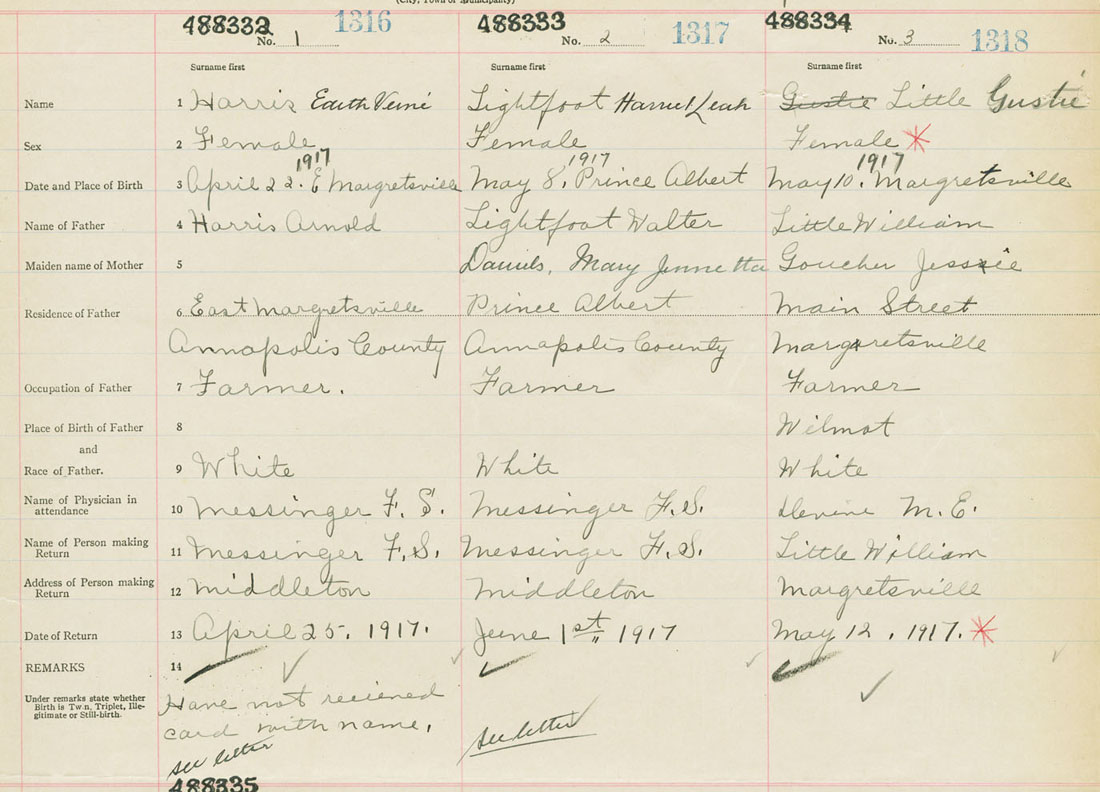 (City, Town or Municipality)
488332 488333 488334
No. 1 1316 No. 2 1317 No. 3 1318
Surname first Surname first Surname first
Name 1 Harris Verné Lightfoot Harriet Leah Gustie Little Gustie
Sex 2 Female Female Female
1917 1917 1917
Date and Place of Birth 3 April 22. E Margretsville May 8, Prince Albert May 10, Margretsville
Name of Father 4 Harris Arnold Lightfoot Walter Little William
Maiden name of Mother 5 Daniels, Mary Jennetta Goucher Jessie
Residence of Father 6 East Margretsville Prince Albert Main Street
Annapolis County Annapolis County Margretsville
Occupation of Father 7 Farmer. Farmer Farmer
Place of Birth of Father 8 Wilmot
and
Race of Father. 9 White White White
Name of Physician in attendance 10 Messinger F. S. Messinger F. S. Devine M. E.
Name of Person making Return 11 Messinger F. S. Messinger F. S. Little William
Address of Person making Return 12 Middleton Middleton Margretsville
Date of Return 13 April 25. 1917. June 1st 1917 May 12, 1917.
REMARKS 14
Under remarks state whether Birth is Twin, Triplet, Ille-
gitimate or Still-birth.
Have not recieved
card with name,
see letter see letter
488335